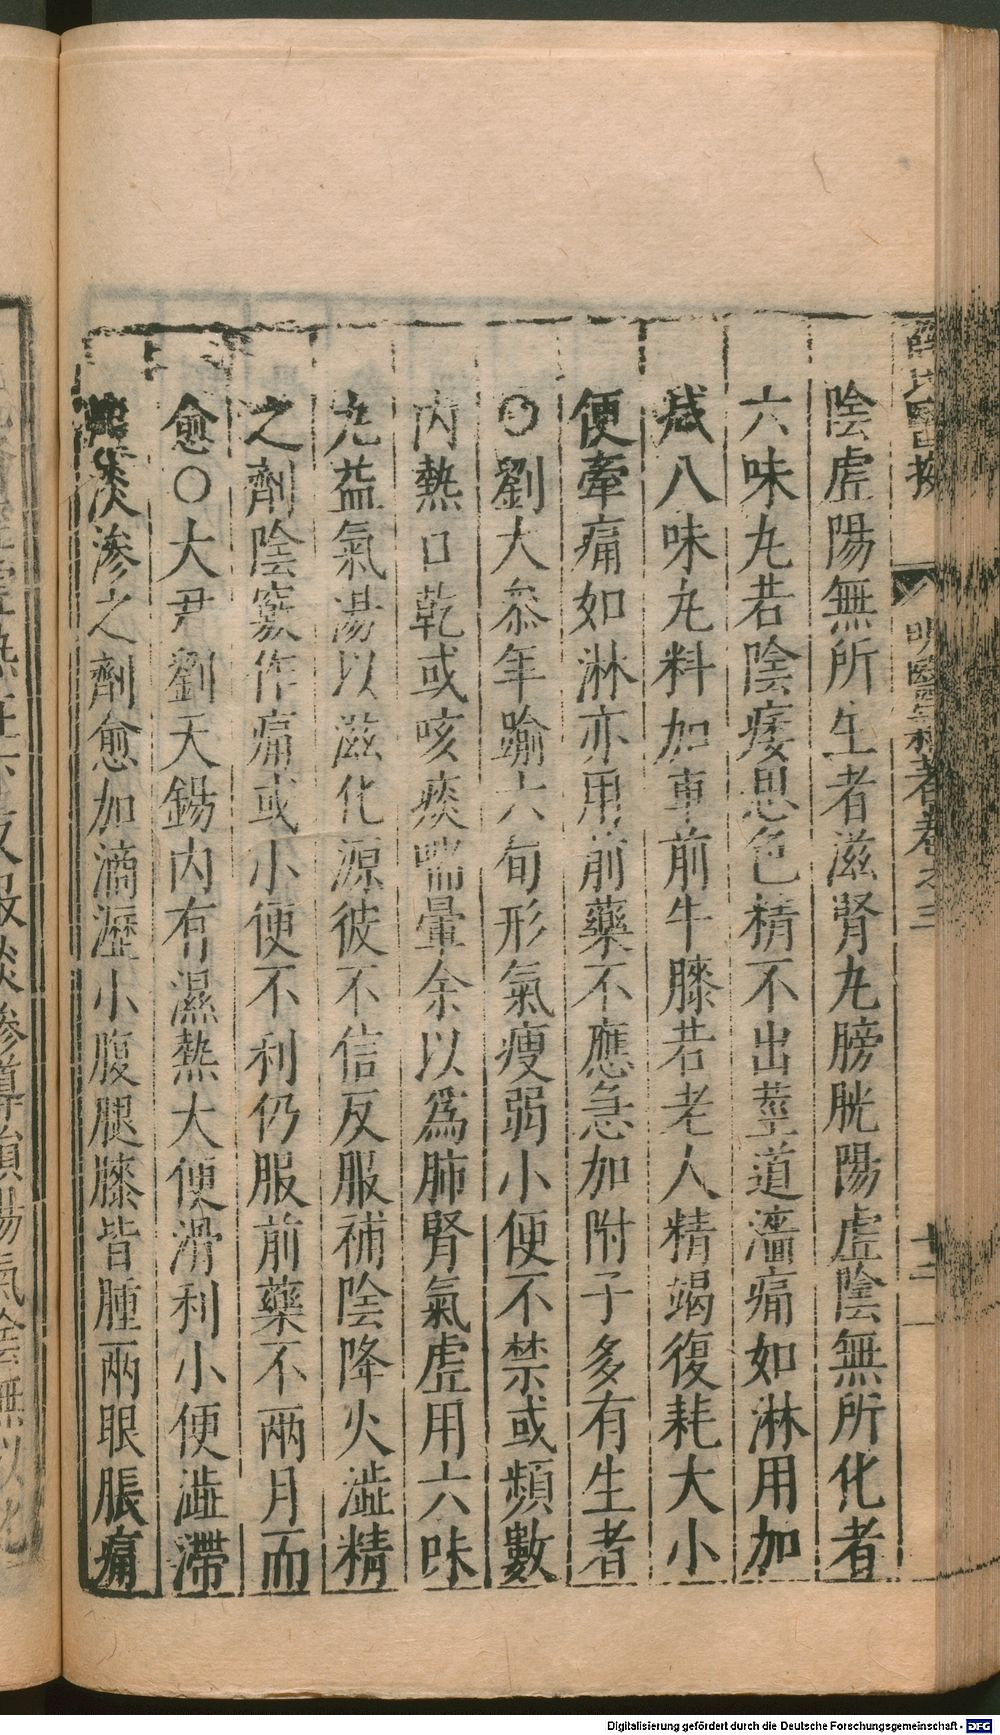 薛氏醫按 明醫雜著卷之三 十二
陰虛陽無所生者滋腎丸膀胱陽虛陰無所化者
六味丸若陰痿思色精不出莖道澁痛如淋用加
减八味丸料加車前牛膝若老人精竭復耗大小
便牽痛如淋亦用前藥不應急加附子多有生者
○劉大叅年踰六旬形氣瘦弱小便不禁或頻數
内熱口乾或咳痰喘暈余以爲肺腎氣虛用六味
丸益氣湯以滋化源彼不信反服補陰降火澁精
之劑陰竅作痛或小便不利仍服前藥不兩月而
愈○大尹劉天錫内有濕熱大便滑利小便澁滯
服淡滲之劑愈加滴瀝小腹腿膝皆腫兩眼脹痛
Digitalisierung gefördert durch die Deutsche Forschungsgemeinschaft - DFG